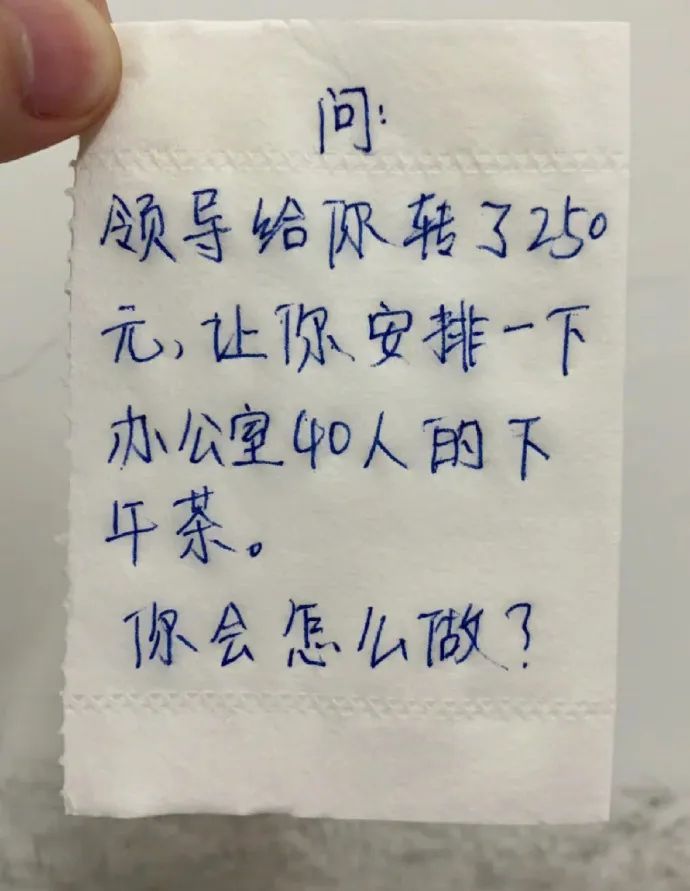 问:
领导给你转了250
元,让你安排一下
办公室40人的下
午茶。
你会怎么做?